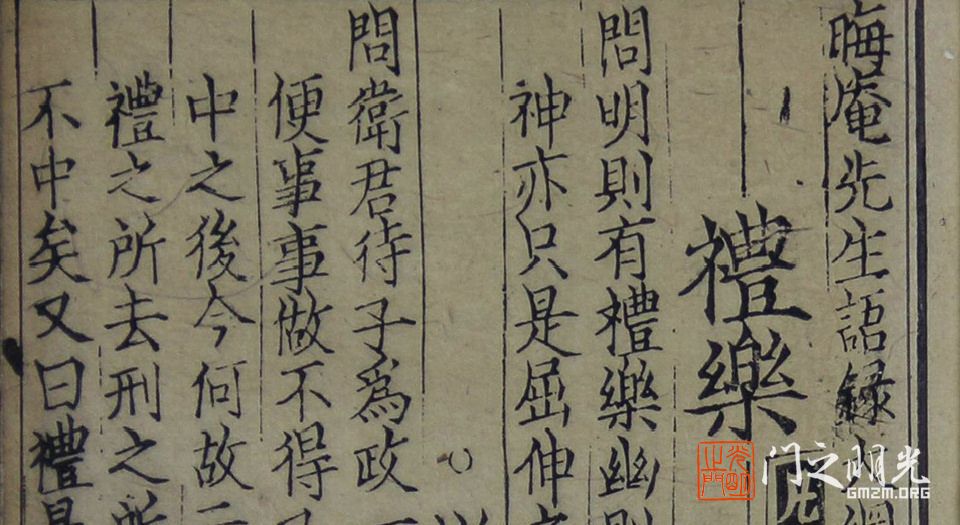 晦庵先生語録
禮樂
問明則有禮樂幽則
神亦只是屈伸
問衛君待子爲政
便事事做不得
中之後今何故
禮之所去刑之所
不中矣又曰禮是
光明之门
GMZM.ORG